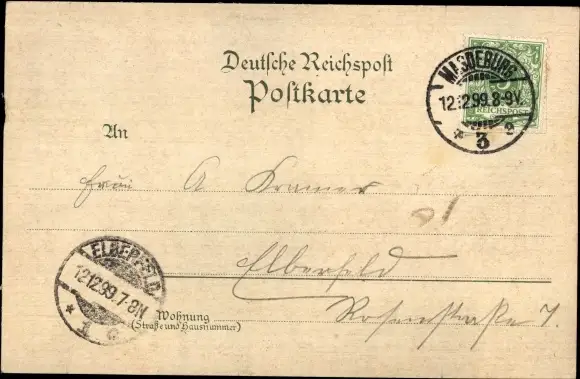 Deutsche Reichspost
Postkarte
MAGDEBURG
12.12.99.8-9V.
* 3 a
REICHSPOST
An
Frau A Kramer
Elberfeld
ELBERFELD
12.12.99.7-8N
* 1 c
Wohnung
(Straße und Hausnummer)
Rosenstraße 7.